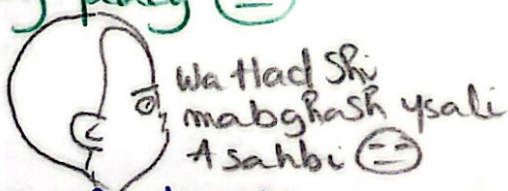 Wa Had Shi
mabghash ysali
A sahbi